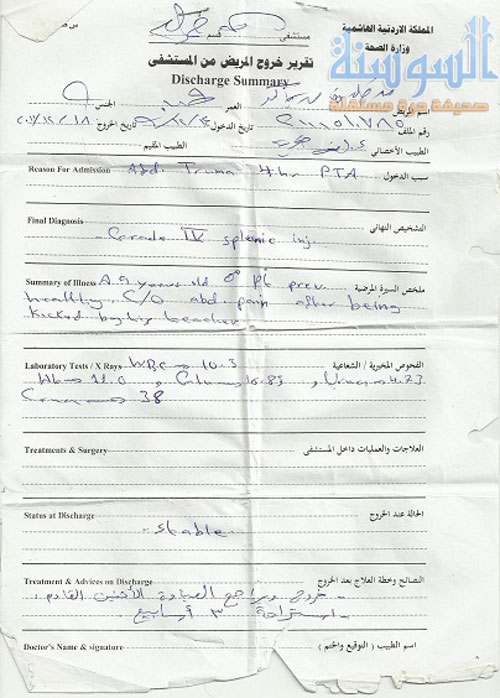 المملكة الاردنية الهاشمية
وزارة الصحة
السوسنة
صحيفة حرة مستقلة
مستشفى قسم
تقرير خروج المريض من المستشفى
Discharge Summary
اسم المريض العمر الجنس
رقم الملف تاريخ الدخول تاريخ الخروج
الطبيب الأخصائي الطبيب المقيم
Reason For Admission Abd. Truma 4hr PTA سبب الدخول
Final Diagnosis التشخيص النهائي
- Grade IV splenic inj.
Summary of Illness A 9 years old ♂ pt prev. ملخص السيرة المرضية
healthy C/O abd. pain after being
kicked by his teacher
Laboratory Tests / X Rays WBC 10.3 الفحوص المخبرية / الشعاعية
Hb 11.0 4.73
38
Treatments & Surgery العلاجات والعمليات داخل المستشفى
Status at Discharge الحالة عند الخروج
- stable
Treatment & Advices on Discharge النصائح وخطة العلاج بعد الخروج
- خروج ويراجع العيادة الأثنين القادم.
- استراحة ٣ أسابيع
Doctor's Name & signature اسم الطبيب ( التوقيع والختم )